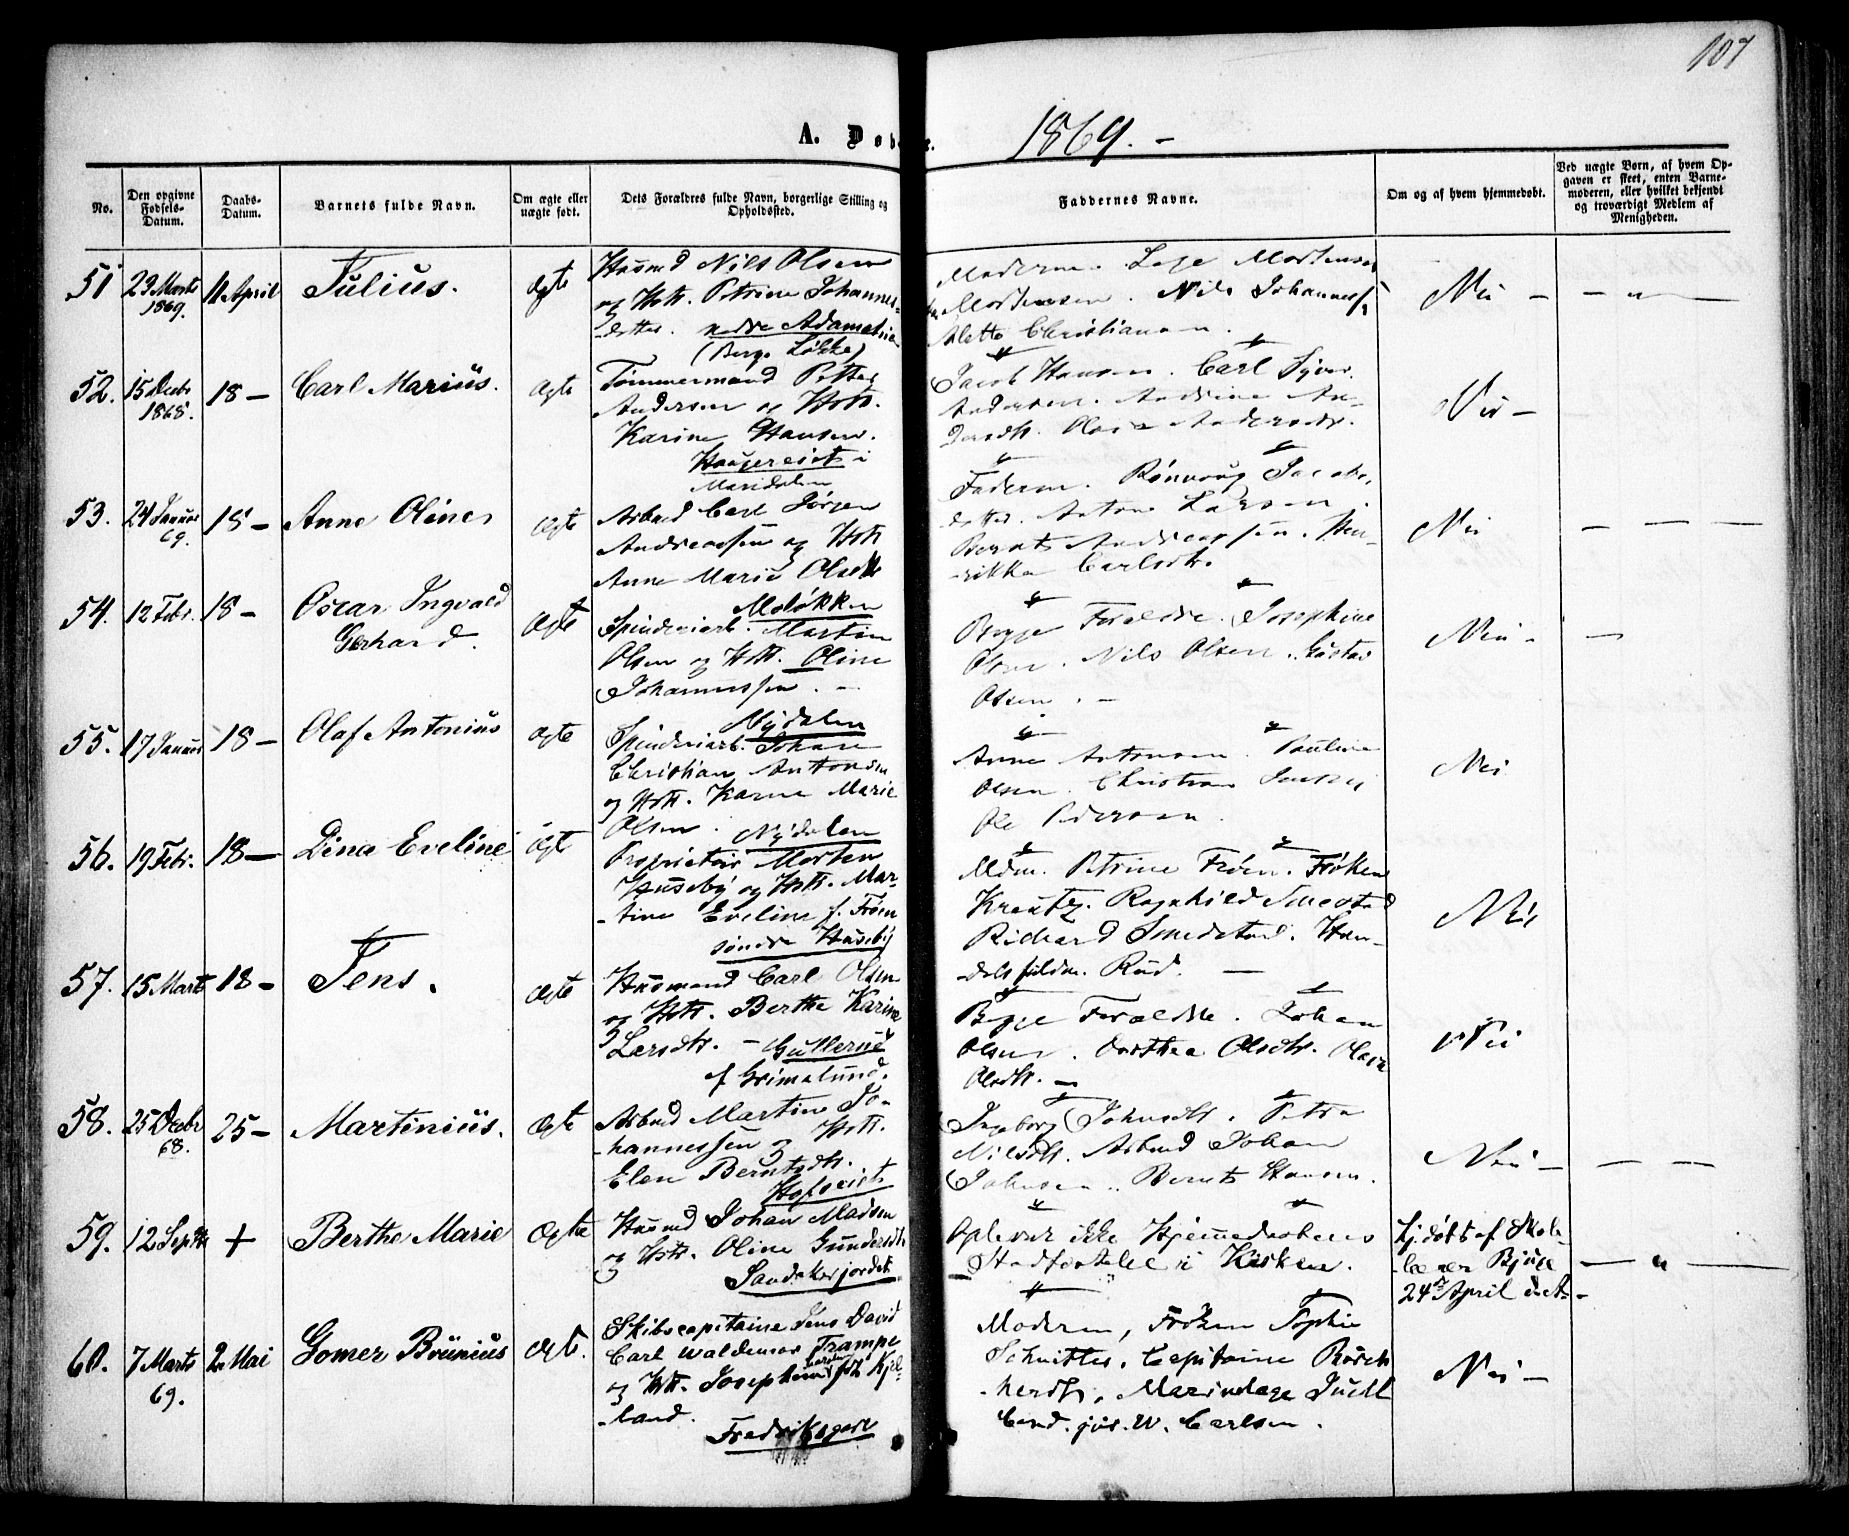 107
A. Døbte.
1869. -
No.
Den opgivne Fødsels-Datum.
Daabs-Datum.
Barnets fulde Navn.
Om ægte eller uægte født.
Dets Forældres fulde Navn, borgerlige Stilling og Opholdssted.
Faddernes Navne.
Om og af hvem hjemmedøbt.
Ved uægte Børn, af hvem Opgaven er skeet, enten Barnemoderen, eller hvilket bekjendt og troværdigt Medlem af Menigheden.
51 23 Marts 1869. 11 April Julius. Ægte
Husmd Nils Olsen
og Hstr. Petrine Johannes-
-detter. nedre
(Berge Løkke)
Moderen. Mortensen
Mortensen. Nils Johanness.
Alette Christiansen.
Nei -
52. 15 Decbr 1868. 18 - Carl Marius. Ægte
Tømmermand Petter
Andersen og Hstr.
Karine Hansen.
i
Maridalen
Jacob Hansen. Carl Syver
Andersen. Andrine An-
dersdtr. Andersdtr.
Nei -
53. 24 Januar 69. 18 - Anne Oline Ægte
Arbmd Carl Jørgen
Andreassen og Hstr
Anne Marie Olsdtr
Moløkken
Faderen. Rønnoug Jacobs-
detter. Anton Larsen.
Bernt Andreassen. Hen-
-rikke Carlsdtr.
Nei
54. 12 Febr. 18 - Oscar Ingvald
Gerhard. Ægte
Spinderiarb. Martin
Olsen og Hstr. Oline
Johannessen. -
Nydalen
Begge Forældre. Josephine
Olsen. Nils Olsen. Gustav
Olsen. -
Nei -
55. 17 Januar 18 - Olaf Antonius Ægte
Spinderiarb. Johan
Christian Antonsen
og Hstr. Karen Marie
Olsen. Nydalen
Anne Antonsen. Pauline
Olsen. Christian
Ole Pedersen.
Nei
56. 19 Febr. 18 - Dina Eveline Ægte
Proprietair Morten
Huseby og Hstr. Mar-
-tine Eveline f. Frøen
søndre Huseby
Mdm. Petrine Frøen. Frøken
Kreutz. Ragnhild Smestad
Richard Smedstad. Han-
-delsfuldm. Rud. -
Nei
57. 15 Marts 18 - Jens. Ægte
Husmand Carl Olsen
og Hstr. Berthe Karine
Larsdtr. - Gullerud
f Grimelund.
Begge Forældre. Johan
Olsen. Dorthea Olsdtr.
Olsdtr. -
Nei
58. 25 Decbr 68. 25 - Martinius. Ægte
Arbmd Martin Jo-
-hannessen og Hstr.
Elen Berntsdtr.
Ingeborg Johnsdtr. Petra
Nilsdtr. Arbmd Johan
Johnsen. Bernt Hansen.
Nei -
59. 12 Septbr + Berthe Marie Ægte
Husmd Johan Madsen
og Hstr. Oline Gundersdtr
Sandakerjordet.
Oplever ikke Hjemmedaabens
Stadfæstelse i Kirken.
Hj. døbt af Skole-
lærer Bjuge
24de April d. A. -
60. 7 Marts 69. 2 Mai Gomer Brunius Ægt.
Skibscapitaine Jens David
Carl Waldemar Trampe
og Hstr. Josephine f. Kjel-
-land.
Moderen, Frøken Sophie
Schnitler, Capitaine Borch
Cand. jur. W. Carlsen.
Nei -